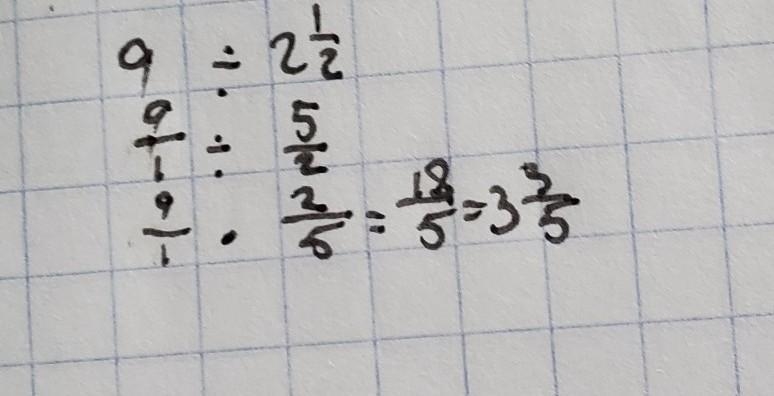 9 ÷ 2 1/2
9/1 ÷ 5/2
9/1 · 2/5 = 18/5 = 3 3/5